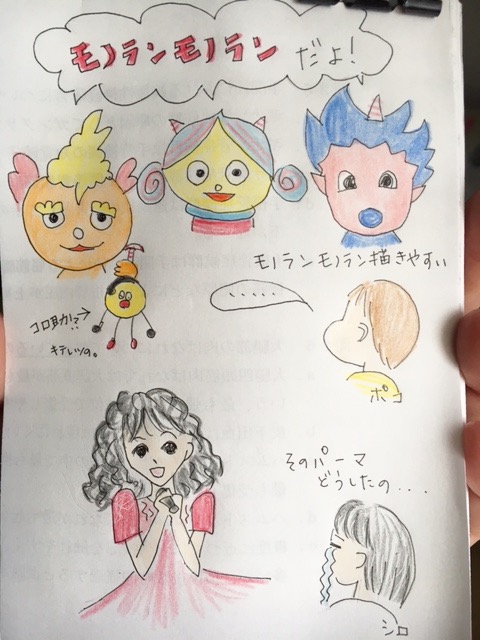 モノランモノランだよ!
モノランモノラン描きやすい
・・・・・
コロ助!?
キテレツの。
ポコ
そのパーマ
どうしたの・・・
シロ